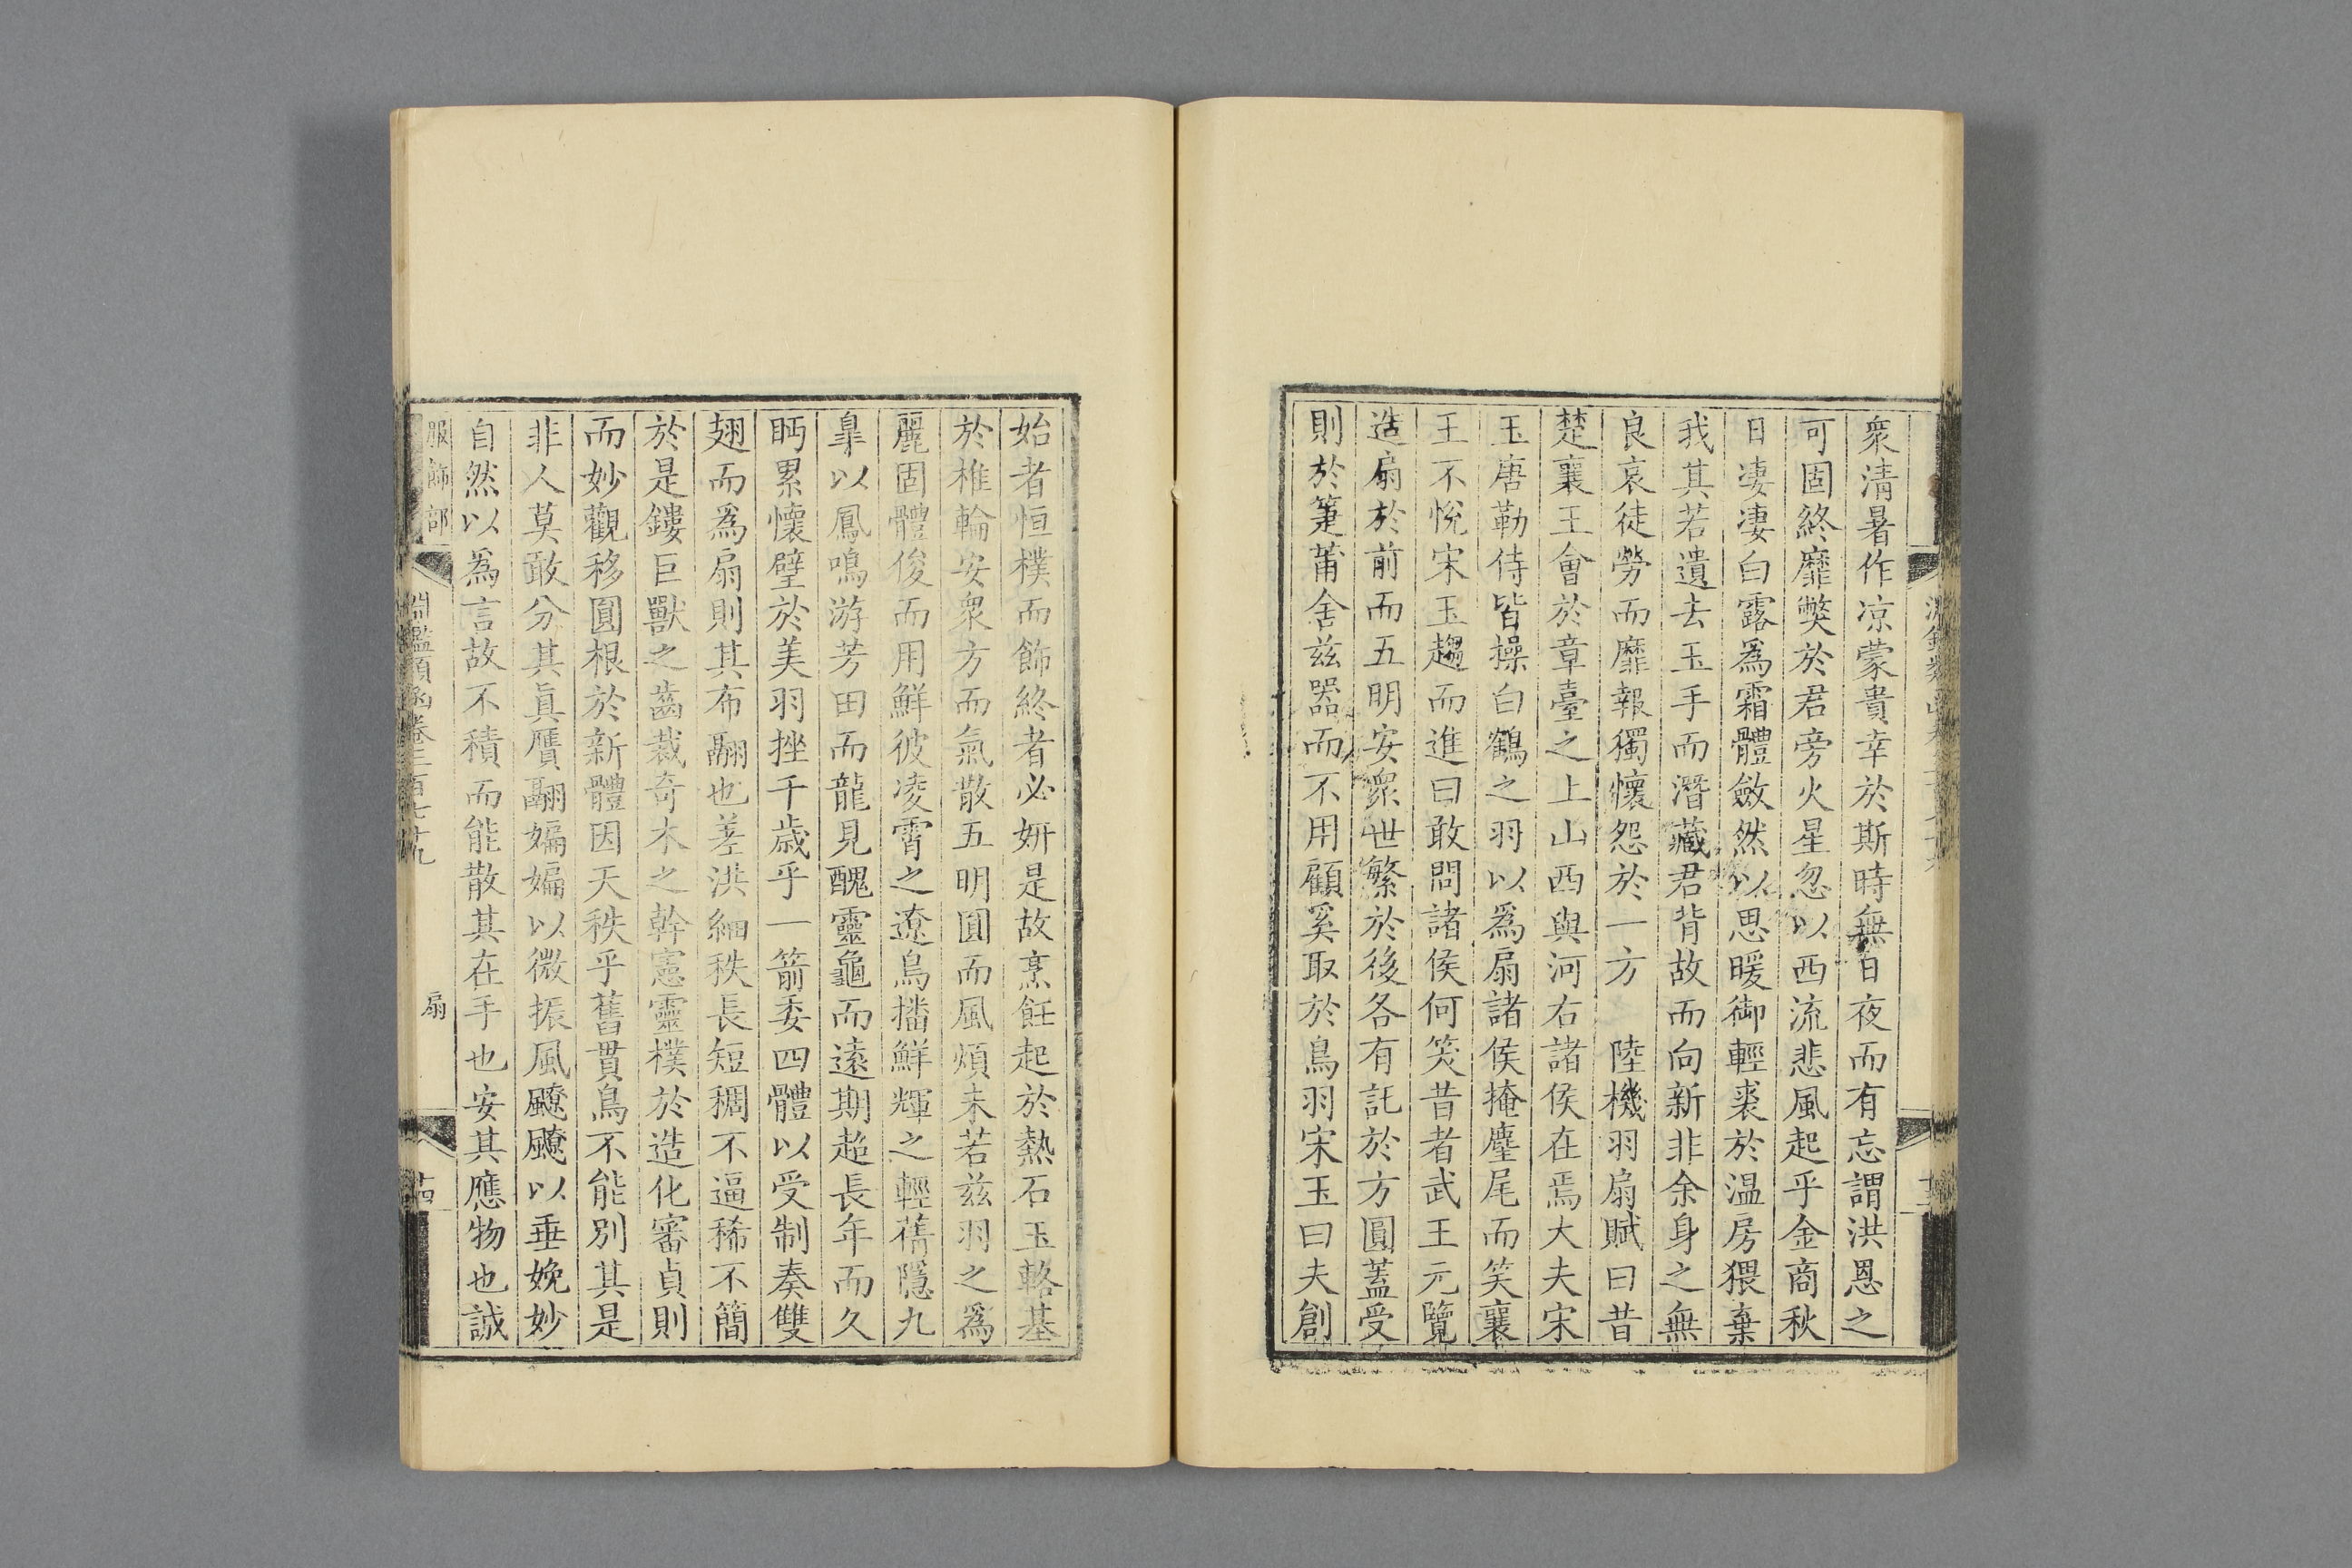 衆清暑作凉蒙貴幸於斯時無日夜而有忘謂洪恩之
可固終靡獘於君旁火星忽以西流悲風起乎金商秋
日凄凄白露爲霜體斂然以思暖御輕裘於温房猥棄
我其若遺去玉手而潛藏君背故而向新非余身之無
良哀徒勞而靡報獨懷怨於一方　陸機羽扇賦曰昔
楚襄王會於章臺之上山西與河右諸侯在焉大夫宋
玉唐勒侍皆操白鶴之羽以爲扇諸侯掩麈尾而笑襄
王不悅宋玉趨而進曰敢問諸侯何笑昔者武王元覽
造扇於前而五明安衆世繁於後各有託於方圓蓋受
則於箑莆舍兹器而不用顧奚取於鳥羽宋玉曰夫創
始者恒樸而飾終者必妍是故烹飪起於熱石玉輅基
於椎輪安衆方而氣散五明圓而風煩未若兹羽之爲
麗固體俊而用鮮彼凌霄之遼鳥播鮮輝之輕蒨隱九
臯以鳳鳴游芳田而龍見醜靈龜而遠期超長年而久
眄累懷璧於美羽挫千歲乎一箭委四體以受制奏雙
翅而爲扇則其布翮也差洪細秩長短稠不逼稀不簡
於是鏤巨獸之齒裁奇木之幹憲靈樸於造化審貞則
而妙觀移圓根於新體因天秩乎舊貫鳥不能別其是
非人莫敢分其眞贋翮媥媥以微振風飂飂以垂婉妙
自然以爲言故不積而能散其在手也安其應物也誠
服飾部　淵鑑類函卷三百七十九　扇　十四